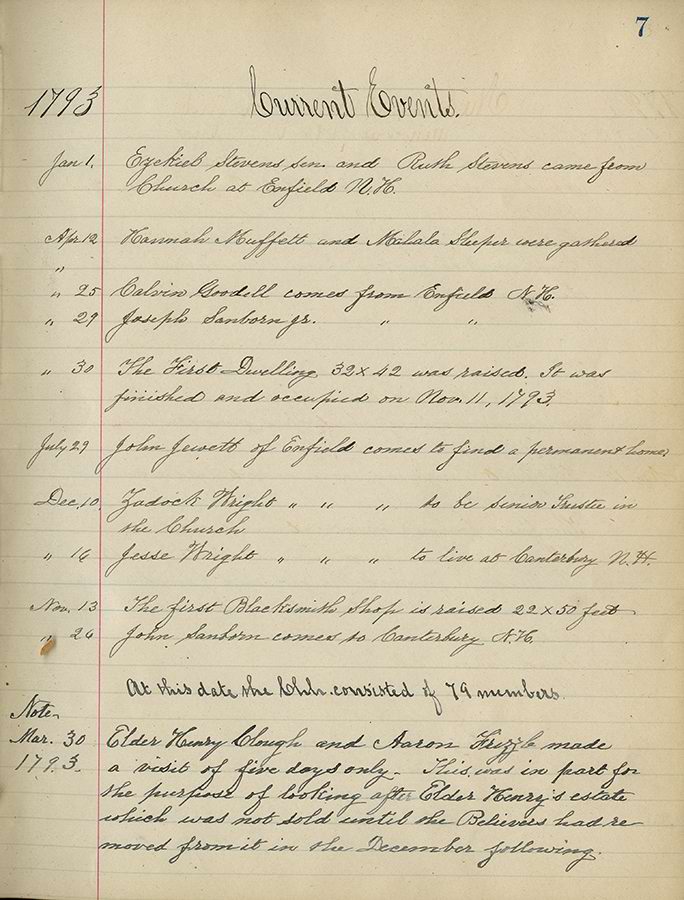 7
1793 Current Events.
Jan 1. Ezekiel Stevens sen. and Ruth Stevens came from
Church at Enfield N.H.
Apr. 12 Hannah Muffett and Mahala Sleeper were gathered
"
" 25 Calvin Goodell comes from Enfield N.H.
" 29 Joseph Sanborn jr. " "
" 30 The First Dwelling 32 x 42 was raised. It was
finished and occupied on Nov. 11, 1793.
July 29 John Jewett of Enfield comes to find a permanent home.
Dec. 10. Zadock Wright " " " to be senior Trustee in
the Church
" 16 Jesse Wright " " " to live at Canterbury N.H.
Nov. 13 The first Blacksmith Shop is raised 22 x 50 feet
" 26 John Sanborn comes to Canterbury N.H.
At this date the Chh. consisted of 79 members.
Note
Mar. 30 Elder Henry Clough and Aaron Frizzle made
1793. a visit of five days only. This was in part for
the purpose of looking after Elder Henry's estate
which was not sold until the Believers had re
moved from it in the December following.